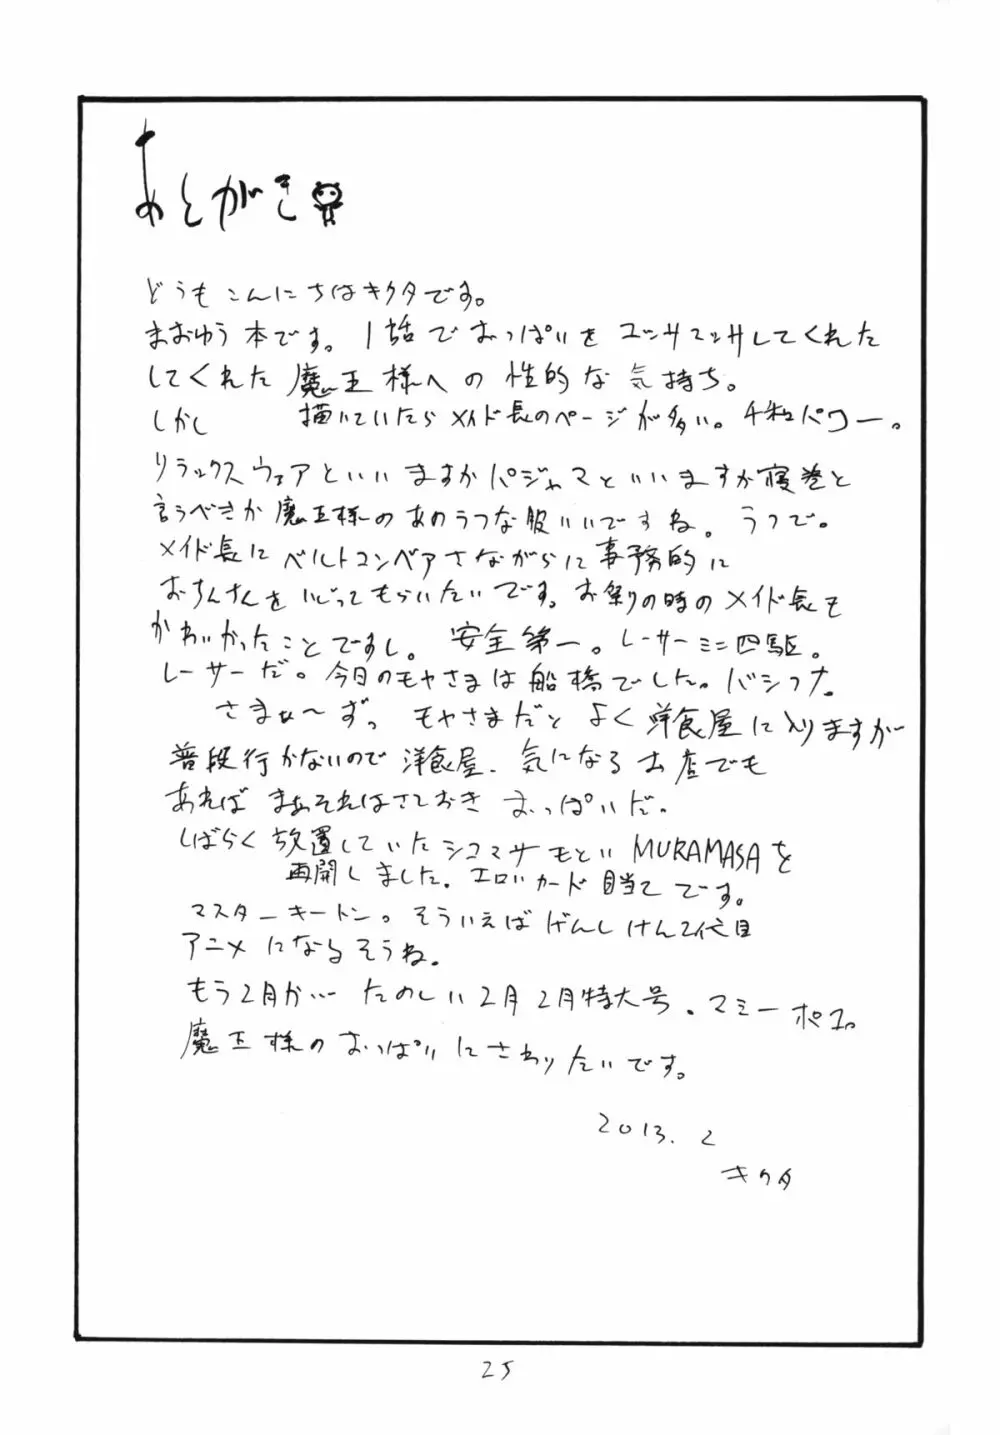 あとがき
どうもこんにちはキクタです。
まおゆう本です。1話でおっぱいをユッサユッサしてくれた
してくれた魔王様への性的な気持ち。
しかし 描いていたらメイド長のページが多い。千和パワー。
リラックスウェアといいますかパジャマといいますか寝巻と
言うべきか魔王様のあのうつな服いいですね。うつで。
メイド長にベルトコンベアさながらに事務的に
おちんさんをいじってもらいたいです。お祭りの時のメイド長も
かわいかったことですし。安全第一。レーサーミニ四駆。
レーサーだ。今日のモヤさまは船橋でした。バシフナ。
さまぁ〜ずっ モヤさまだとよく洋食屋に入りますが
普段行かないので洋食屋、気になるお店でも
あれば まぁそれはさておき おっぱいだ。
しばらく放置していたシコマサもといMURAMASAを
再開しました。エロいカード目当てです。
マスターキートン。そういえばげんしけん2代目
アニメになるそうね。
もう2月か… たのしい2月2月特大号。マミーポコ。
魔王様のおっぱいにさわりたいです。
2013.2
キクタ
25